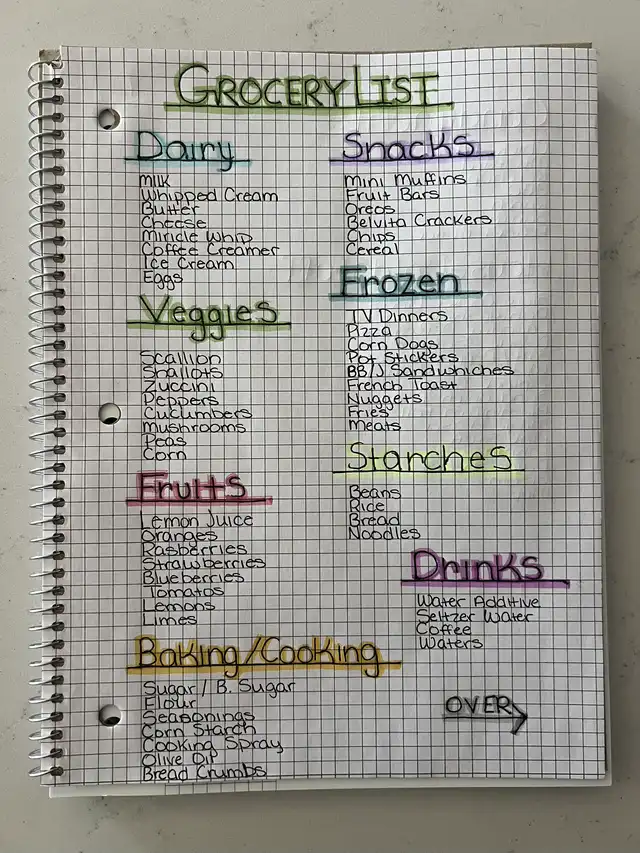 GROCERY LIST
Dairy
Milk
Whipped Cream
Butter
Cheese
Miricle Whip
Coffee Creamer
Ice Cream
Eggs
Veggies
Scallion
Shallots
Zuccini
Peppers
Cucumbers
Mushrooms
Peas
Corn
Fruits
Lemon Juice
Oranges
Rasberries
Strawberries
Blueberries
Tomatos
Lemons
Limes
Baking/Cooking
Sugar / B. Sugar
Flour
Seasonings
Corn Starch
Cooking Spray
Olive Oil
Bread Crumbs
Snacks
Mini Muffins
Fruit Bars
Oreos
Belvita Crackers
Chips
Cereal
Frozen
TV Dinners
Pizza
Corn Dogs
Pot Stickers
BB/J Sandwhiches
French Toast
Nuggets
Fries
Meats
Starches
Beans
Rice
Bread
Noodles
Drinks
Water Additive
Seltzer Water
Coffee
Waters
OVER